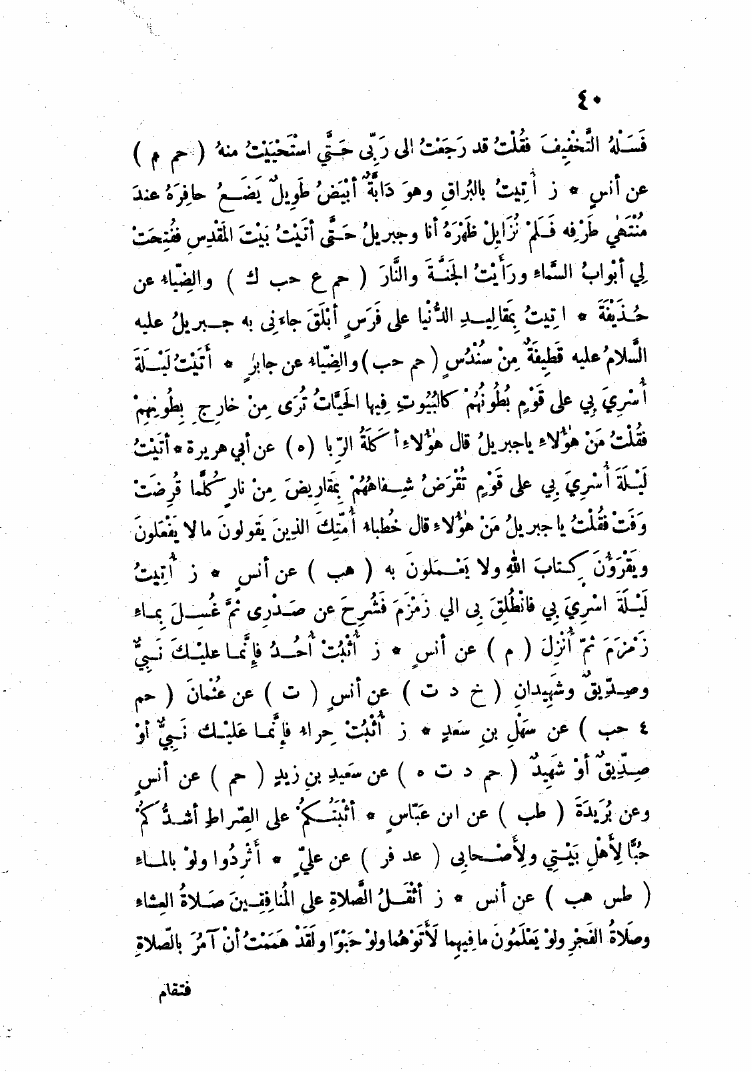 ٤٠
فَسَلْهُ التَّخْفِيفَ فَقُلْتُ قد رَجَعْتُ الى رَبّى حَتَّي اسْتَحْيَيْتُ منهُ ( حم م )
عن أنسٍ * ز أُتِيتُ بالبُراقِ وهوَ دَابَّةٌ أبْيَضُ طَوِيلٌ يَضَعُ حافِرَهُ عندَ
مُنْتَهٰي طَرْفِه فَلَمْ نُزَايِلْ ظَهْرَهُ أنا وجبريلُ حَتَّى أتَيْتُ بَيْتَ المَقْدِسِ ففُتِحَتْ
لِي أبْوابُ السَّماءِ ورَأَيْتُ الجَنَّةَ والنَّارَ ( حم ع حب ك ) والضِّياءُ عن
حُذَيْفَةَ * اتِيتُ بمَقالِيدِ الدُّنْيا على فَرَسٍ أبْلَقَ جاءَنِى به جبريلُ عليه
السَّلامُ عليه قَطِيفَةٌ مِنْ سُنْدُسٍ ( حم حب ) والضِّياءُ عن جابرٍ * أتَيْتُ لَيْلَةَ
أُسْرِيَ بِي على قَوْمٍ بُطُونُهُمْ كالبُيُوتِ فِيها الحَيَّاتُ تُرَى مِنْ خارِجِ بِطُونِهِمْ
فقُلْتُ مَنْ هٰؤُلاءِ ياجبريلُ قال هٰؤُلاءِ أكَلَةُ الرِّبا (ه) عن أبي هريرة * أتَيْتُ
لَيْلَةَ أُسْرِيَ بي على قَوْمٍ تُقْرَضُ شِفاهُهُمْ بِمَقارِيضَ مِنْ نارٍ كُلَّما قُرِضَتْ
وَفَتْ فقُلْتُ يا جبريلُ مَنْ هٰؤُلاءِ قال خُطباءُ أُمَّتِكَ الذِينَ يَقولونَ مالا يَفْعَلونَ
ويَقْرَؤُنَ كِتابَ اللهِ ولا يَعْمَلونَ به ( هب ) عن أنسٍ * ز أُتِيتُ
لَيْلَةَ اسْرِيَ بِي فانْطُلِقَ بى الي زَمْزَمَ فَشُرِحَ عن صَدْرِى ثمَّ غُسِلَ بِماءِ
زَمْزَمَ ثمّ أُنْزِلَ ( م ) عن أنسٍ * ز أُثْبُتْ أُحُدُ فإنَّما عليْكَ نَبِيٌّ
وصِدِّيقٌ وشَهِيدانِ ( خ د ت ) عن أنسٍ ( ت ) عن عُثْمانَ ( حم
٤ حب ) عن سَهْلِ بنِ سَعدٍ * ز أُثْبُتْ حِراءُ فإنَّما عَلَيْك نَبِيٌّ أوْ
صِدِّيقٌ أوْ شهيدٌ ( حم د ت ه ) عن سَعيدِ بنِ زيدٍ ( حم ) عن أنسٍ
وعن بُرَيْدَةَ ( طب ) عن ابن عَبَّاسٍ * أثْبَتُكُمْ على الصِّراطِ أشدُّكُمْ
حُبًّا لِأهْلِ بَيْتِي ولِأصْحابِى ( عد فر ) عن عليٍّ * أثْرِدُوا ولوْ بالماءِ
( طس هب ) عن أنس * ز أثْقَلُ الصَّلاةِ على المُنافِقِينَ صَلاةُ العِشاءِ
وصَلاةُ الفَجْرِ ولوْ يَعْلَمُونَ ما فِيهِما لَأَتَوْهُما ولوْ حَبْوًا ولَقَدْ هَمَمْتُ أنْ آمُرَ بالصّلاةِ
فتقام